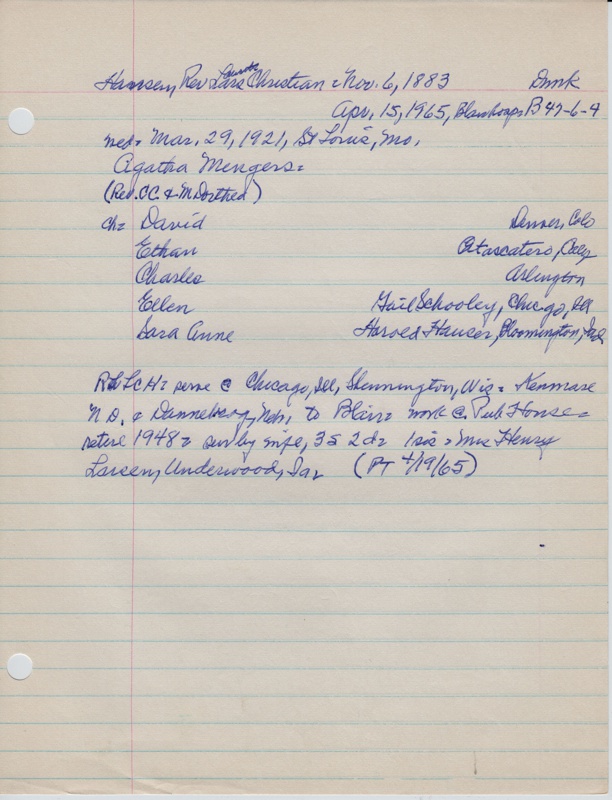 Hansen, Rev Lars Christian = Nov. 6, 1883 Dnmk
Apr. 15, 1965, Blair B 47-6-4
med= Mar. 29, 1921, St Louis, Mo.
Agatha Mengers=
(Rev. CC. & M. Dorthea)
ch= David Denver, Colo
Ethan Atascatero, Calif
Charles Arlington
Ellen Gail Schooley, Chicgo, Ill
Sara Anne Harold Hauser, Bloomington, Ind
Rev LCH= serve @ Chicago, Ill, Shennington, Wis = Kenmare
N D. & Dannebrog, Neb, to Blair= work @ Pub House=
retire 1948= surv by wife, 3s 2d= 1 sis = Mrs Henry
Larsen, Underwood, Ia= (PT 4/19/65)